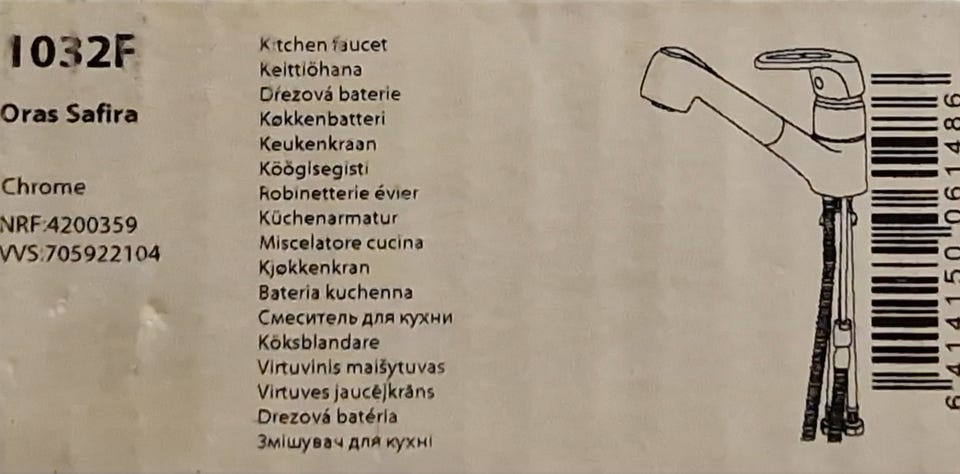 1032F
Oras Safira
Chrome
NRF:4200359
VVS:705922104
Kitchen faucet
Keittiöhana
Dřezová baterie
Køkkenbatteri
Keukenkraan
Köögisegisti
Robinetterie évier
Küchenarmatur
Miscelatore cucina
Kjøkkenkran
Bateria kuchenna
Смеситель для кухни
Köksblandare
Virtuvinis maišytuvas
Virtuves jaucējkrāns
Drezová batéria
Змішувач для кухні
6 414150 061486